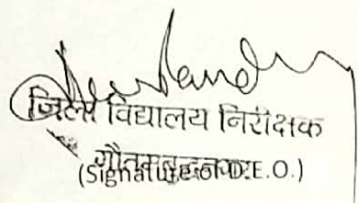 जिला विद्यालय निरीक्षक
गौतमबुद्धनगर
(Signature of D.E.O.)